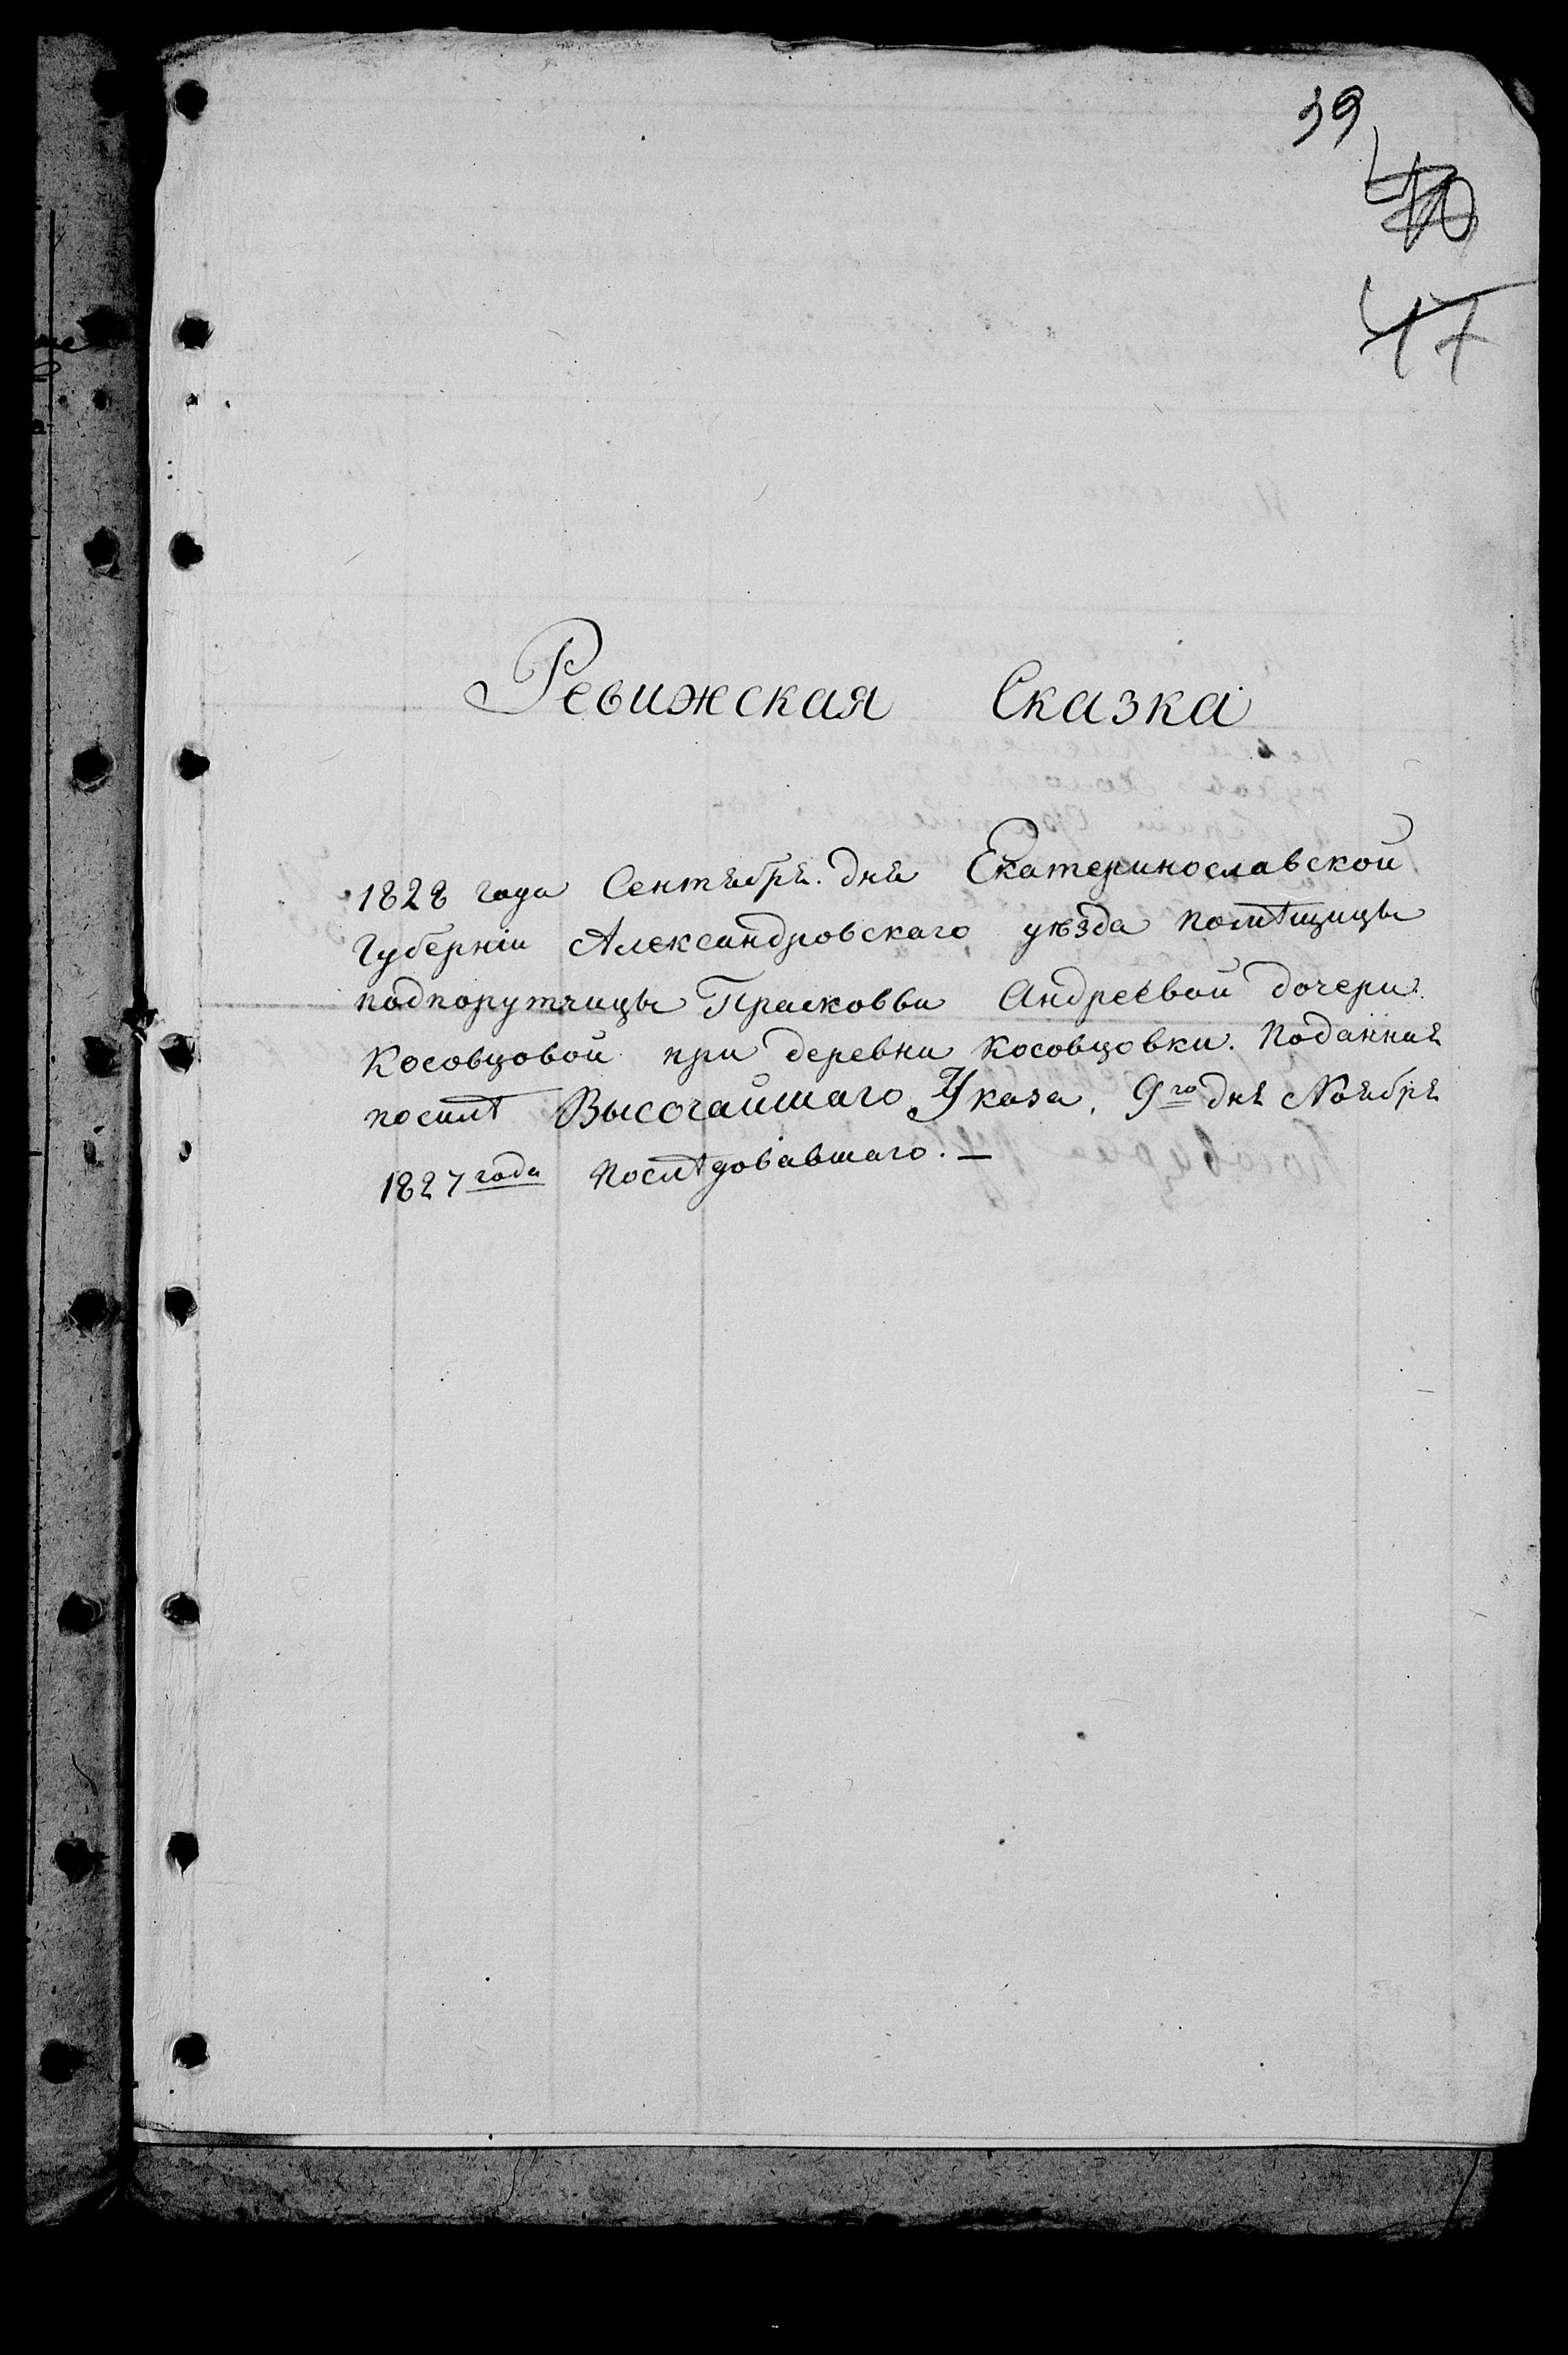 39
40
47
Ревижская Сказка
1828 года Сентября. дня Екатеринославской
Губерніи Александровскаго уѣзда помѣщицы
подпорутчицы Прасковьи Андреевой дочери
Косовцовой при деревни Косовцовки. Поданная
посилѣ Высочайшаго Указа, 9го дня Ноября
1827 года Послѣдовавшаго. —